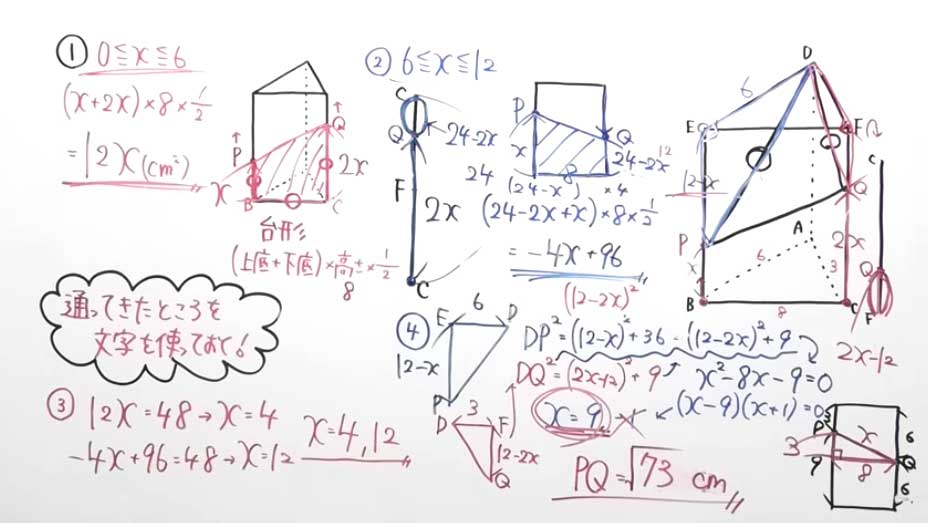 ① 0≦x≦6
(x+2x)×8×1/2
=12x(cm²)
P
Q
x
2x
B
C
台形
(上底+下底)×高さ×1/2
8
通ってきたところを
文字を使っておく!
③ 12x=48→x=4
-4x+96=48→x=12
x=4,12
② 6≦x≦12
C
Q
24-2x
24
F
2x
C
P
Q
x
8
24-2x
12
(24-x)×4
(24-2x+x)×8×1/2
=-4x+96
④
E
6
D
12-x
P
D
3
F
12-2x
Q
(12-2x)²
DP²=(12-x)²+36=(12-2x)²+9
DQ²=(2x-12)²+9
x²-8x-9=0
(x-9)(x+1)=0
x=9
PQ=√73 cm
D
6
E
F
12-x
Q
P
A
2x
x
6
3
B
8
C
C
Q
F
2x-12
3
P
x
6
3
9
8
Q
6